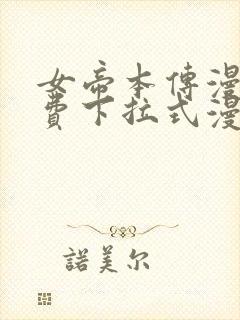 女帝本傳漫
費下拉式漫
諾美尔